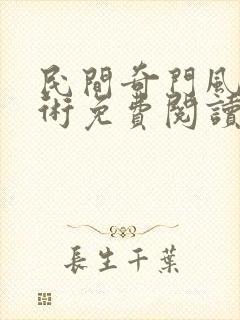 民間奇門風
術免費閱讀
長生千葉